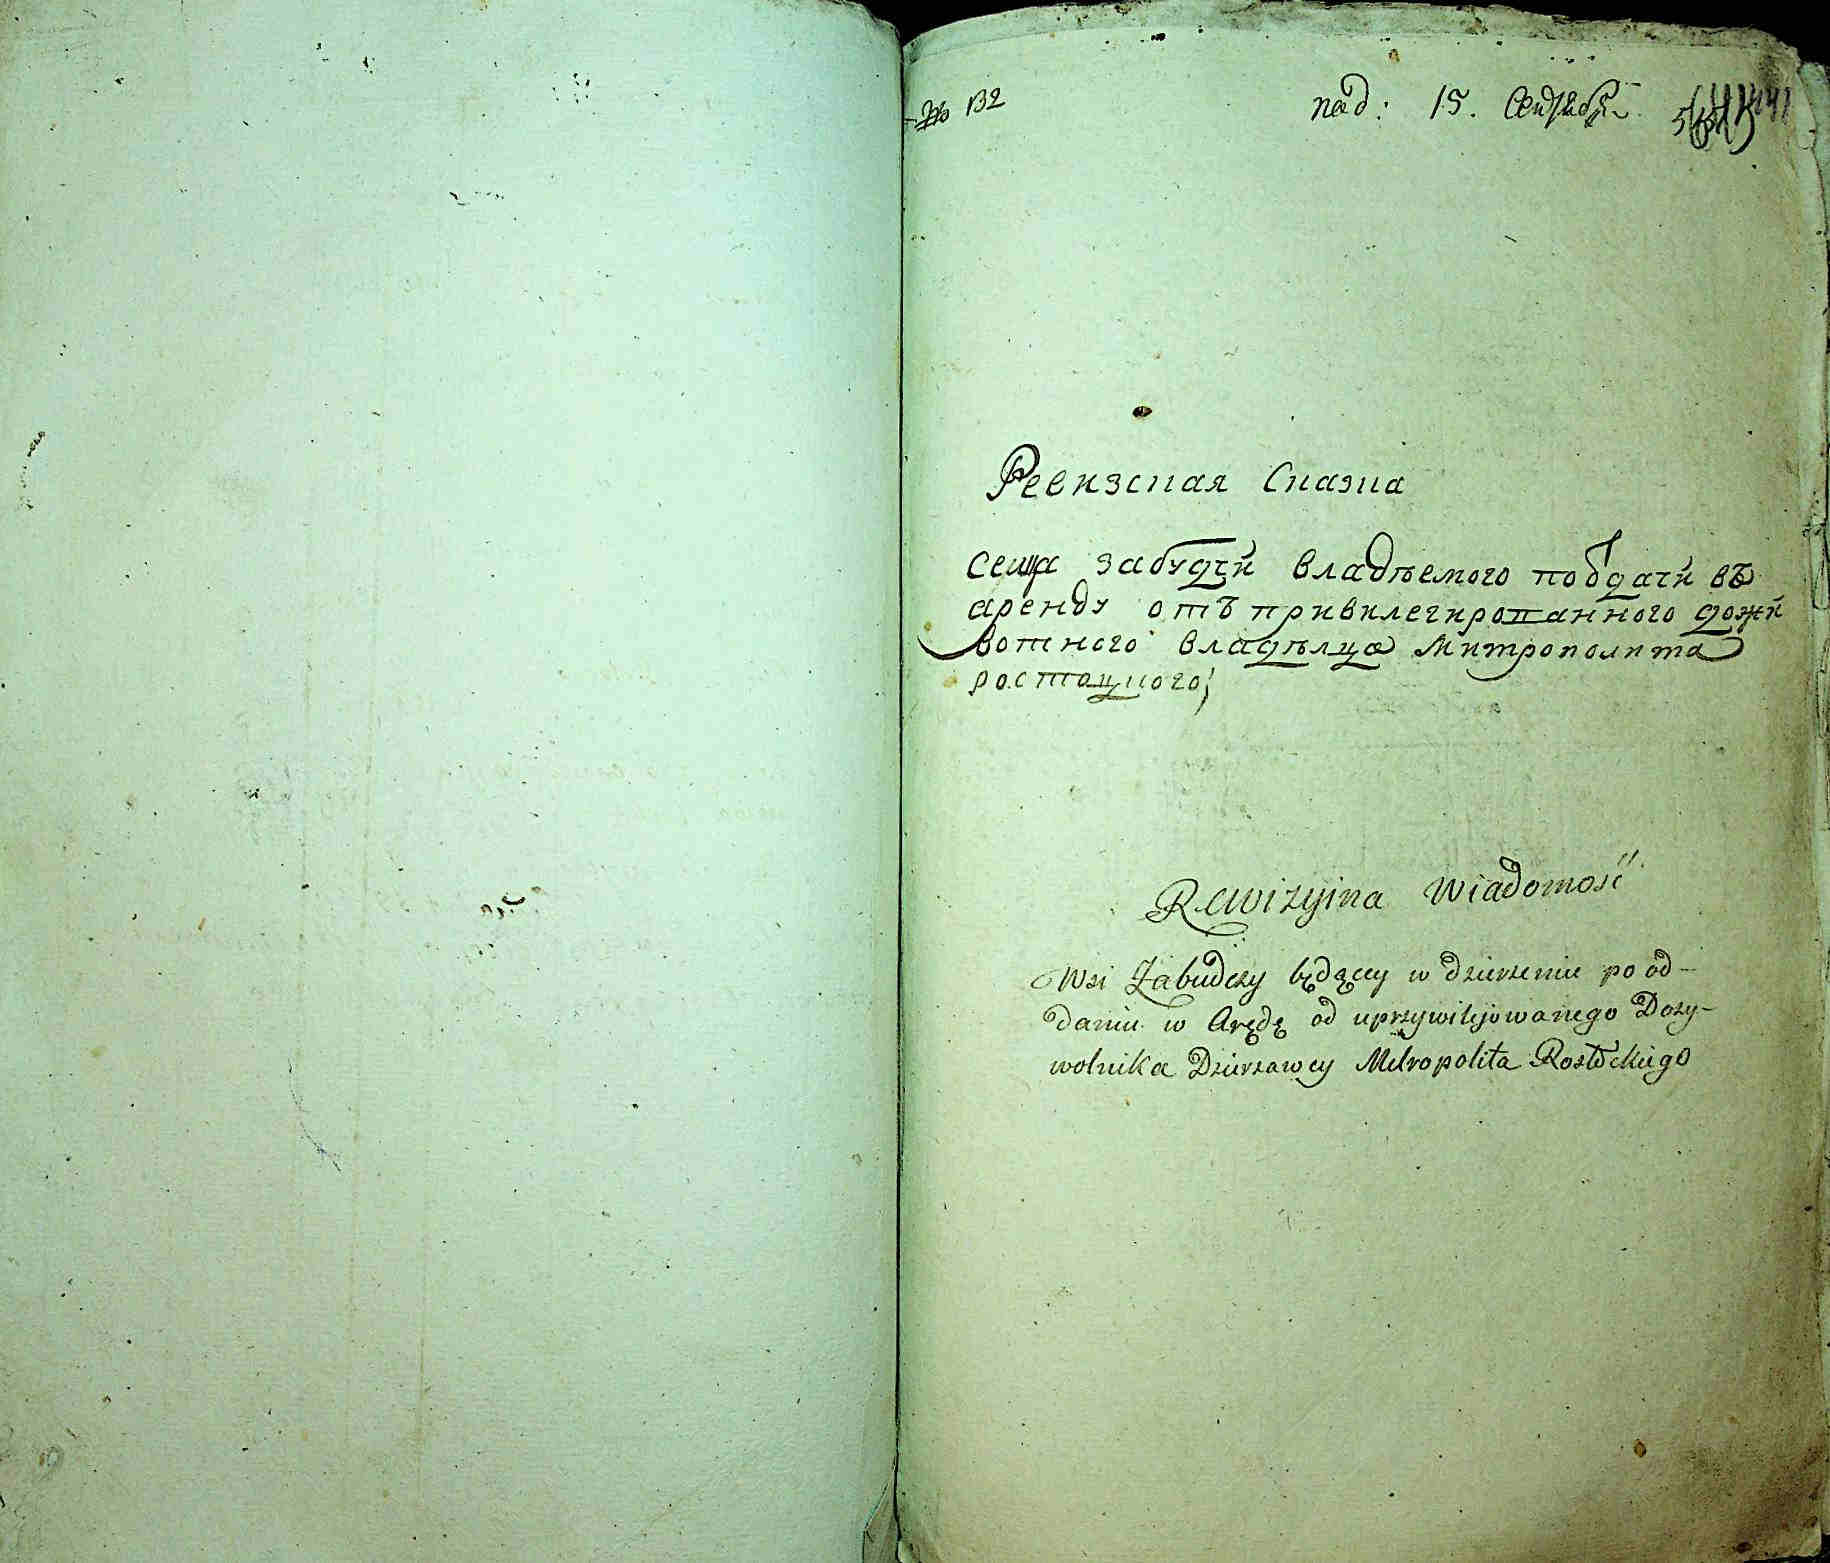 № 132
под: 15. Сентября
Ревизская Сказка
села забудчй владѣемого поодачй въ
аренду отъ привилегированного дожй
вотного владѣлца Митрополита
ростоцкого;
Rewizyina Wiadomość
Wsi Zabudczy będącey w dzierżeniu po od-
daniu w Arędę od uprzywilejowanego Dozy-
wotnika Dzierzawcy Metropolita Rostockiego